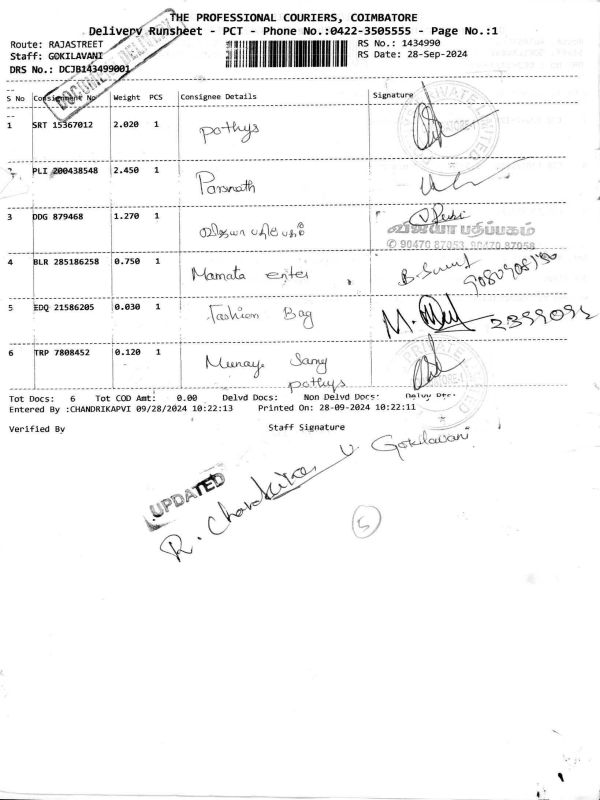 THE PROFESSIONAL COURIERS, COIMBATORE
Delivery Runsheet - PCT - Phone No.:0422-3505555 - Page No.:1
Route: RAJASTREET RS No.: 1434990
Staff: GOKILAVANI RS Date: 28-Sep-2024
DRS No.: DCJB143499001
S No Consignment No Weight PCS Consignee Details Signature
1 SRT 15367012 2.020 1 pothys
PLI 200438548 2.450 1 Parsnath
3 DDG 879468 1.270 1 விஜயா பதிப்பகம்
விஜயா பதிப்பகம்
✆ 90470 87053, 90470 87058
4 BLR 285186258 0.750 1 Mamata enter
5 EDQ 21586205 0.030 1 Fashion Bag 2399092
6 TRP 7808452 0.120 1 Samy
pothys
Tot Docs: 6 Tot COD Amt: 0.00 Delvd Docs: Non Delvd Docs:
Entered By :CHANDRIKAPVI 09/28/2024 10:22:13 Printed On: 28-09-2024 10:22:11
Verified By Staff Signature
V. Gokilavani
UPDATED
R. Chandrika
5